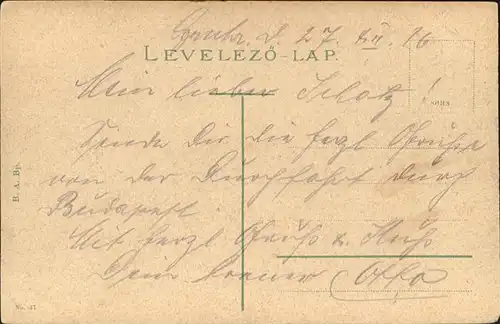 d. 27. XII. 16
LEVELEZŐ-LAP.
Mein lieber Schatz!
Sende Dir die herzl Grüße
von der Durchfahrt durch
Budapest.
Mit herzl Gruß & Kuß
Dein treuer Otto
B. A. Bp.